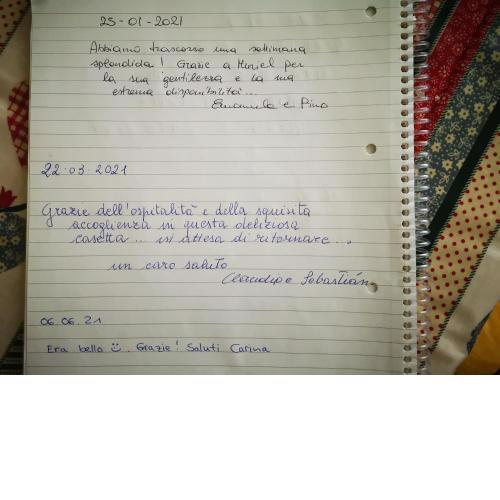 25-01-2021
Abbiamo trascorso una settimana
splendida! Grazie a Muriel per
la sua gentilezza e la sua
estrema disponibilità...
Emanuela e Pino
22.03.2021
Grazie dell'ospitalità e della squisita
accoglienza in questa deliziosa
casetta... in attesa di ritornare...
un caro saluto
Claudio e Sebastián
06.06.21
Era bello ☺. Grazie! Saluti Carina